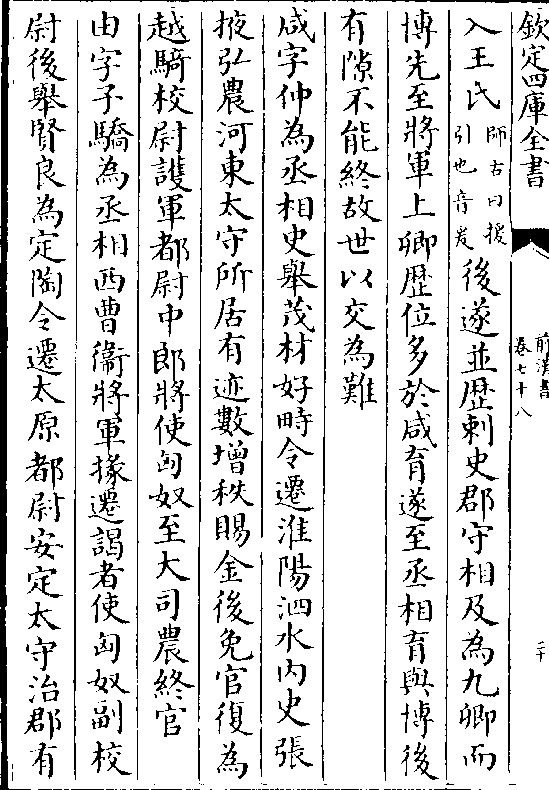 欽定四庫全書
前漢書
卷七十八
二十
入王氏師古曰援
引也音爰後遂並歴刺史郡守相及為九卿而
博先至將軍上卿歴位多於咸育遂至丞相育與博後
有隙不能終故世以交為難
咸字仲為丞相史舉茂材好畤令遷淮陽泗水内史張
掖弘農河東太守所居有迹數增秩賜金後免官復為
越騎校尉護軍都尉中郎將使匈奴至大司農終官
由字子驕為丞相西曹衛將軍掾遷謁者使匈奴副校
尉後舉賢良為定陶令遷太原都尉安定太守治郡有